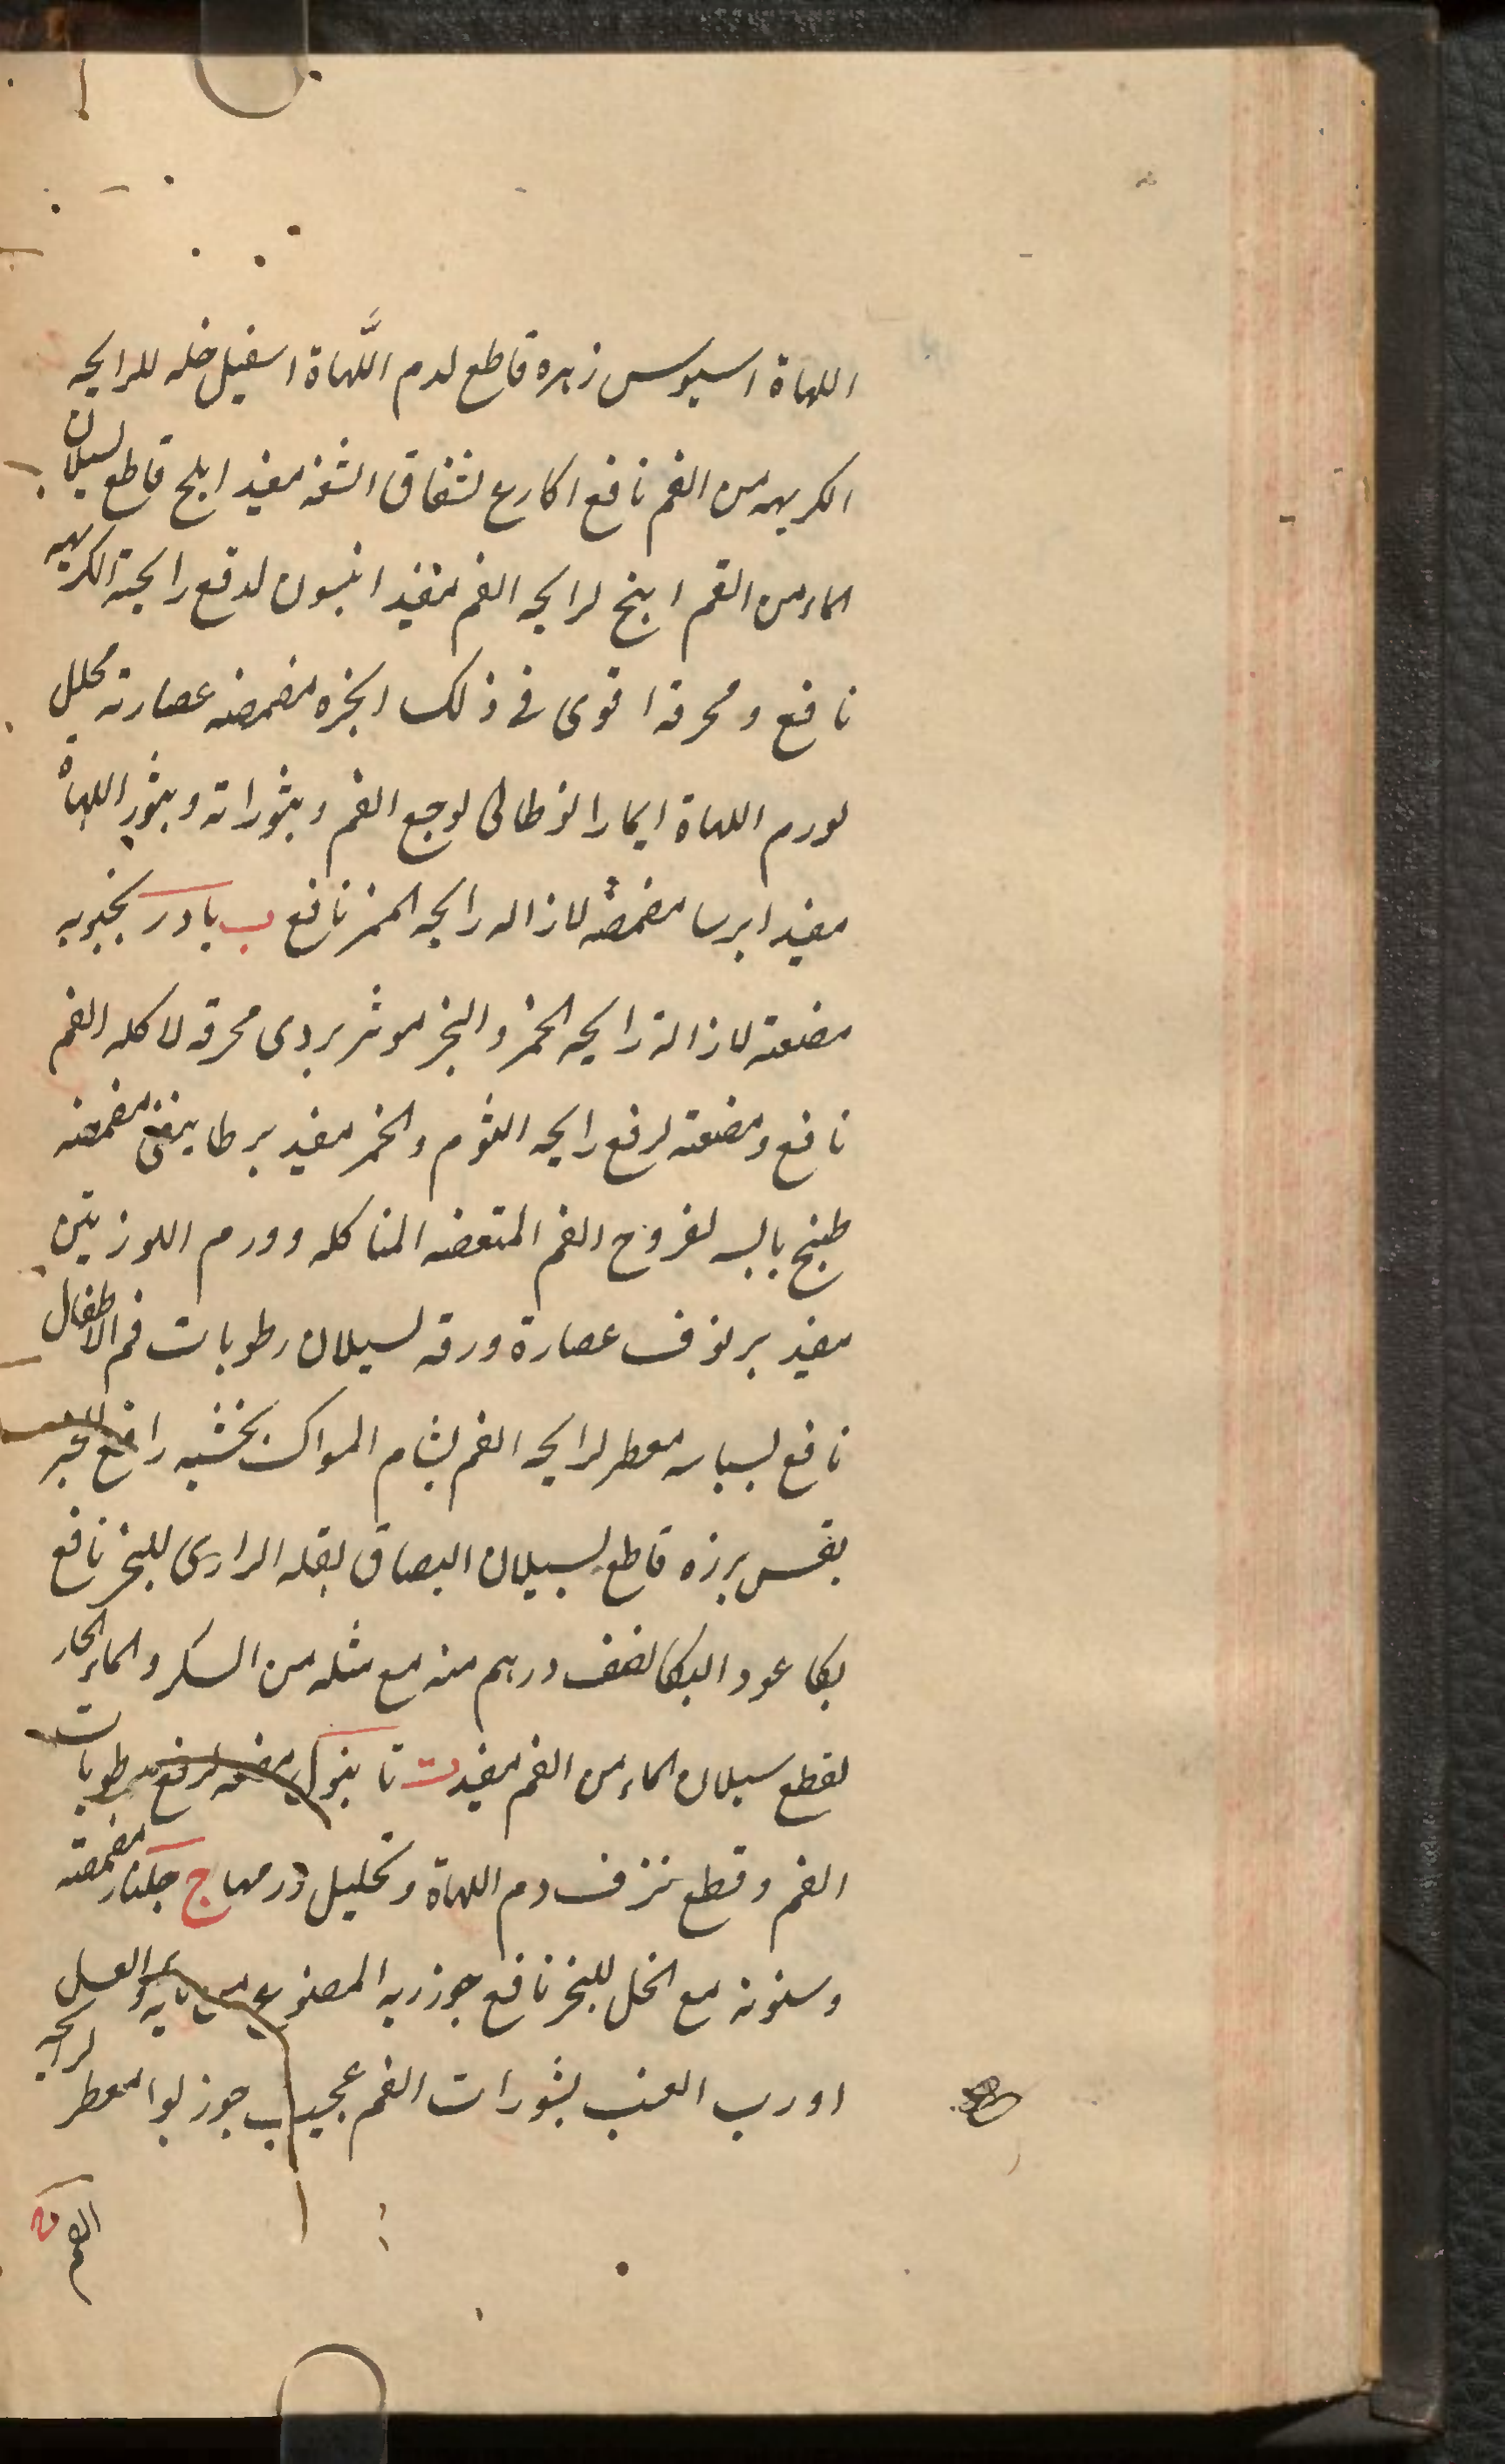 اللهاة اسيوس زهره قاطع لدم اللَّهاة اسقيل خله للرايحه
الكريهه من الفم نافع اكارع لشقاق الشفه مفيد املج قاطع لسيلان
الماء من الفم ابنج لرايحه الفم مفيد انيسون لدفع رايحته الكريهه
نافع ومحرقه اقوى فى ذلك انجره مضمضه عصارته محلل
لورم اللهاة ايمارانوطالى لوجع الفم وبثوراته وبثور اللهاة
مفيد ايرسا مضمضة لازاله رايحه الخمر نافع ب بادرنجبويه
مضغته لازالة رايحه الخمر والبخر موثر بردى محرقه لاكله الفم
نافع ومضغته لرفع رايحه الثوم والخمر مفيد برطانيقى مضمضه
طبيخ يابسه لقروح الفم المتعفنه المتاكله وورم اللوزتين
مفيد برنوف عصارة ورقه لسيلان رطوبات فم الاطفال
نافع بسباسه معطر لرايحه الفم بشام السواك بخشبه رافع
بقس بزره قاطع لسيلان البصاق بقله الرازى للبخر نافع
بكا عود البكا نصف درهم منه مع مثله من السكر والماء الحار
لقطع سيلان الماء من الفم مفيد ت تانبول مضغه لرفع رطوبات
الفم وقطع نزف دم اللهاة وتحليل ورمها ج جلنار مضمضته
وسنونه مع الخل للبخر نافع جوز ربه المصنوع من مايه والعسل
او رب العنب لبثورات الفم عجيب جوزبوا معطر لرايحه
الفم